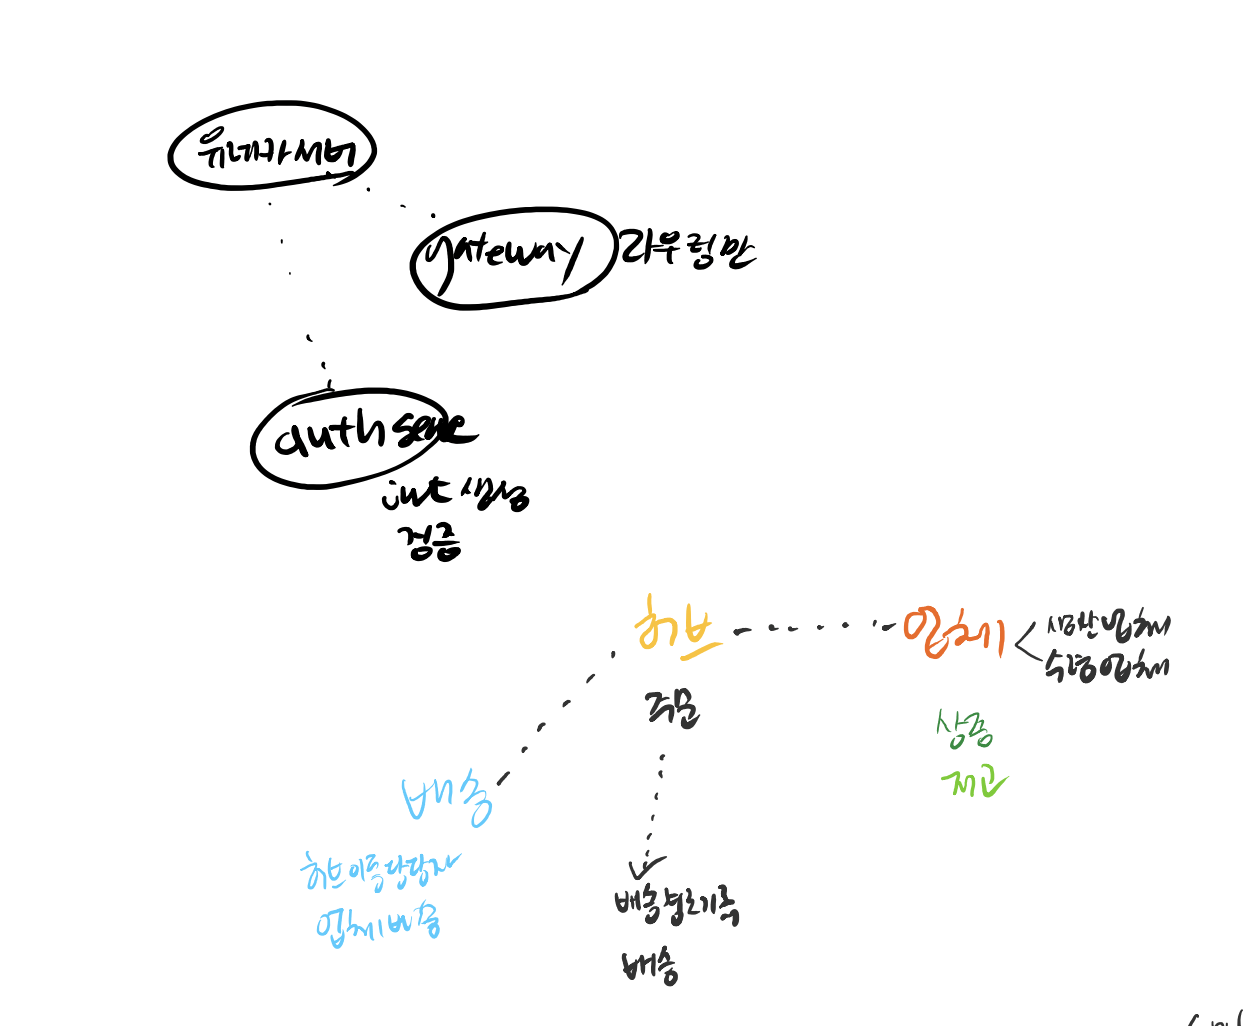 유레카 서버
gateway 라우팅만
auth
jwt 생성
검증
허브
업체
생산업체
수령업체
주문
상품
재고
배송
허브이동담당자
업체배송
배송경로기록
배송